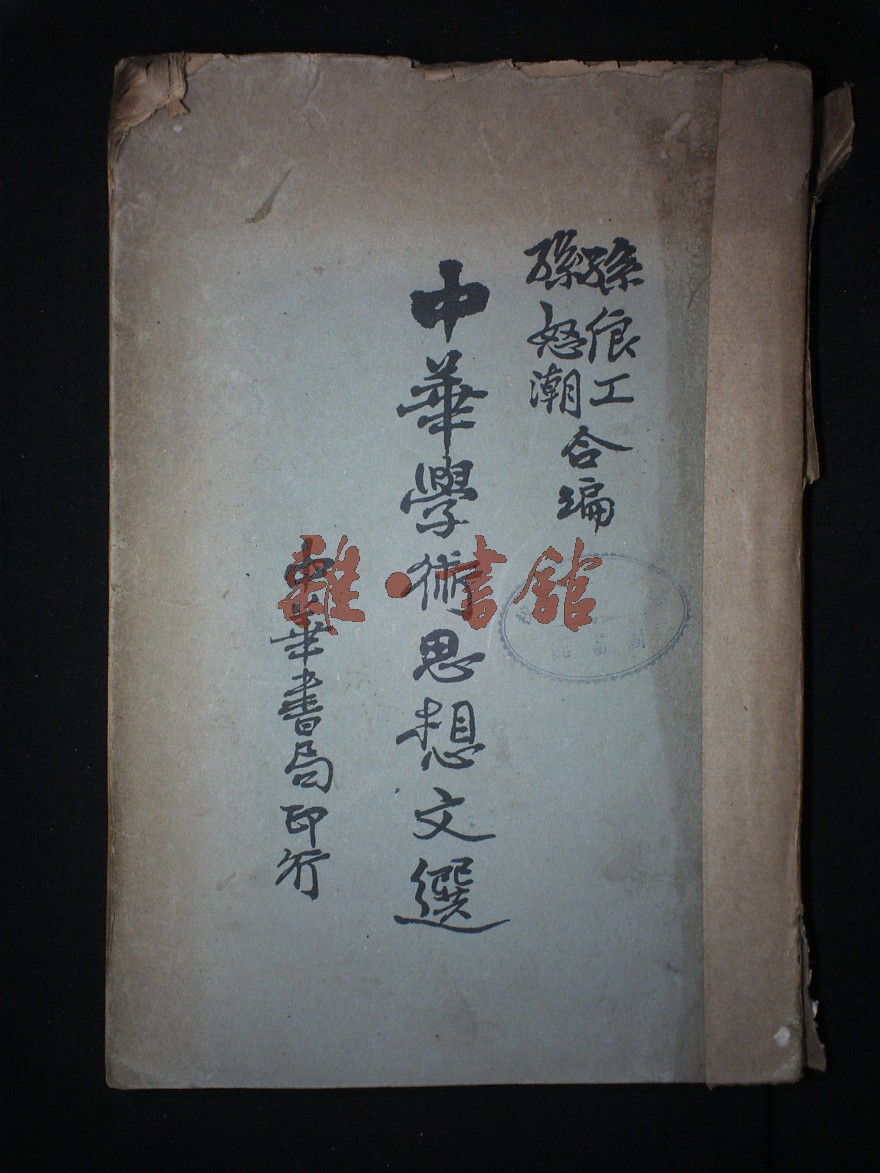 孫俍工
孫怒潮
合編
中華學術思想文選
中華書局印行
雜·書館